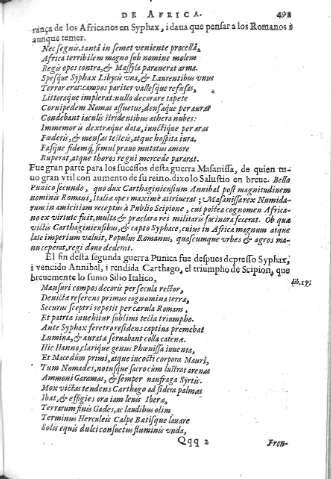 DE AFRICA. 492
rança de los Africanos en Syphax, i daua que pensar a los Romanos i
aunque temer.
Nec segnis tanta in semet veniente procella,
Africa terribilem magno sub nomine molem
Regis opes contra, & Massyla parauerat arma.
Spesque Syphax Libycis vna, & Laurentibus vnus
Terror erat: campos pariter vallesque refusas,
Littoraque implerat: nullo decorare tapete
Cornipedem Nomas assuetus, densaque per auras
Condebant iaculis stridentibus athera nubes:
Immemor is dextræque data, iunctique per aras
Fœderis, & mensas testeis, atque hospita iura,
Fasque fidemq́; simul prauo mutatus amore
Ruperat, atque thoros regni mercede pararat.
Fue gran parte para los sucessos desta guerra Masanissa, de quien tu-
uo gran vtil con aumento de su reino. dixolo Salustio en breue. Bello
Punico secundo, quo dux Carthaginiensium Annibal post magnitudinem
nominis Romani, Italia opes maximè attriuerat; Masanissa rex Numida-
rum in amicitiam receptus à Publio Scipione, cui postea cognomen Africa-
no ex virtute fuit, multa & præclara rei militaris facinora fecerat. Ob quæ
victis Carthaginiensibus, & capto Syphace, cuius in Africa magnum atque
late imperium valuit, Populus Romanus, quascumque vrbes & agros ma-
nu ceperat, regi dono dederat.
El fin desta segunda guerra Punica fue despues de preso Syphax,
i vencido Annibal, i rendida Carthago, el triumpho de Scipion, que
breuemente lo sumo Silio Italico,
lib. 17.
Mansuri compos decoris per secula rector,
Deuicta referens primus cognomina terra,
Securus sceptri repetit per carula Romam,
Et patria inuehitur sublimi tecta triumpho.
Ante Syphax feretro residens captiua premebat
Lumina, & aurata seruabant colla catena.
Hic Hannon, clarique genus Phœnissa iuuenta,
Et Macedûm primi, atque incocti corpora Mauri,
Tum Nomades, notusque sacro cùm lustrat arenas
Ammoni Garamas, & semper naufraga Syrtis.
Mox victas tendens Carthago ad sidera palmas
Ibat, & effigies ora iam lenis Ibera,
Terrarum finis Gades, ac laudibus olim
Terminus Herculeis Calpe Batisque lauare
Solis equis dulci consuetus fluminis vnda,
Qqq 2 Fron-